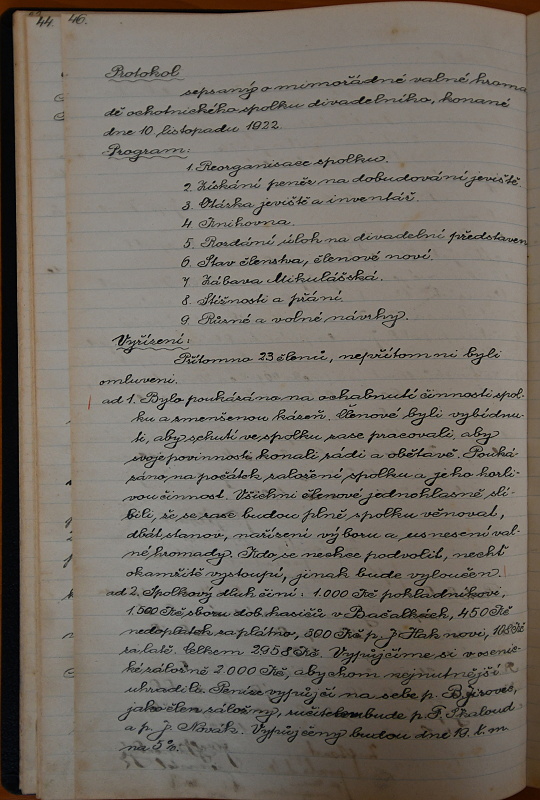 44.
46.
Protokol
sepsaný o mimořádné valné hroma
dě ochotnického spolku divadelního, konané
dne 10 listopadu 1922.
Program:
1. Reorganisace spolku.
2. Získání peněz na dobudování jeviště.
3. Otázka jeviště a inventář.
4. Knihovna.
5. Rozdání úloh na divadelní představen
6. Stav členstva, členové noví.
7. Zábava Mikulášská.
8. Stížnosti a přání.
9. Různé a volné návrhy.
Vyřízení:
Přítomno 23 členů, nepřítomni byli
omluveni.
ad 1. Bylo poukázáno na ochabnutí činnosti spol-
ku a zmenšenou kázeň. Členové byli vybídnu-
ti, aby schutí ve spolku zase pracovali, aby
svoje povinnosti konali rádi a obětavě. Pouká-
záno, na počátek založení spolku a jeho horli-
vou činnost. Všichni členové jednohlasně slí-
bili, že se zase budou plně spolku věnovat,
dbát stanov, nařízení výboru a usnesení val-
né hromady. Kdo se nechce podvolit, nechť
okamžitě vystoupí, jinak bude vyloučen.
ad 2. Spolkový dluh činí: 1.000 Kč pokladníkovi,
1.500 Kč sboru dob. hasičů v Bačalkách, 450 Kč
nedoplatek za plátno, p. J.
za latě. Celkem 2958 Kč. Vypůjčíme si v osenic-
ké záložně 2.000 Kč, abychom nejnutnější
uhradili. Peníze vypůjčí na sebe p.
jako člen záložny, ručitelem bude p. F.
a p. J. Novák. Vypůjčeny budou dne t. m.
na